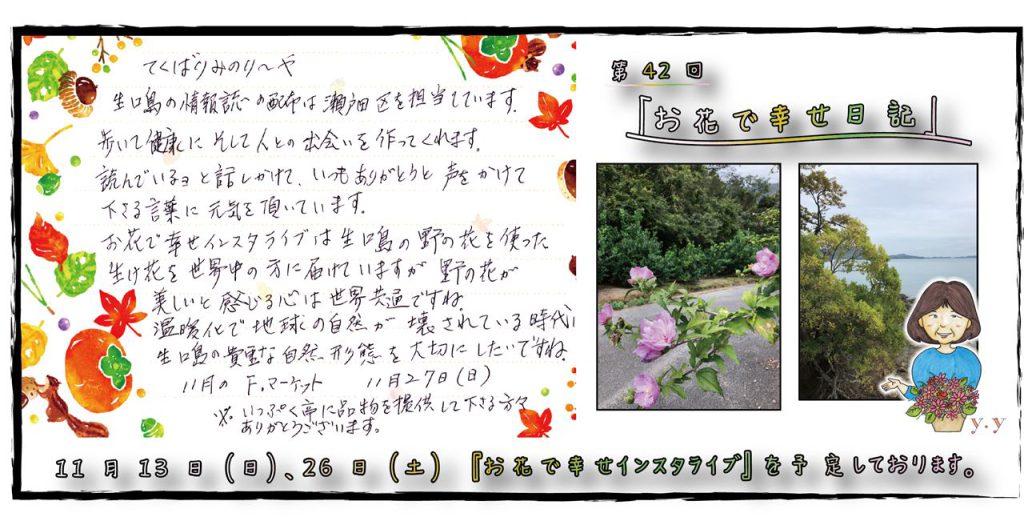 てくばりみのり〜や
生口島の情報誌の配布は瀬戸田区を担当しています。
歩いて健康に そして人との出会いを作ってくれます。
読んでいるヨと話しかけて、いつもありがとうと声をかけて
下さる言葉に元気を頂いています。
お花で幸せインスタライブは生口島の野の花を使った
生け花を世界中の方に届けていますが 野の花が
美しいと感じる心は世界共通ですね。
温暖化で地球の自然が壊されている時代に
生口島の貴重な自然、形態を大切にしたいですね。
11月の F.マーケット 11月27日(日)
※いっぷく亭に品物を提供して下さる方々
ありがとうございます。
第42回
『お花で幸せ日記』
y.y
11月13日(日)、26日(土)『お花で幸せインスタライブ』を予定しております。